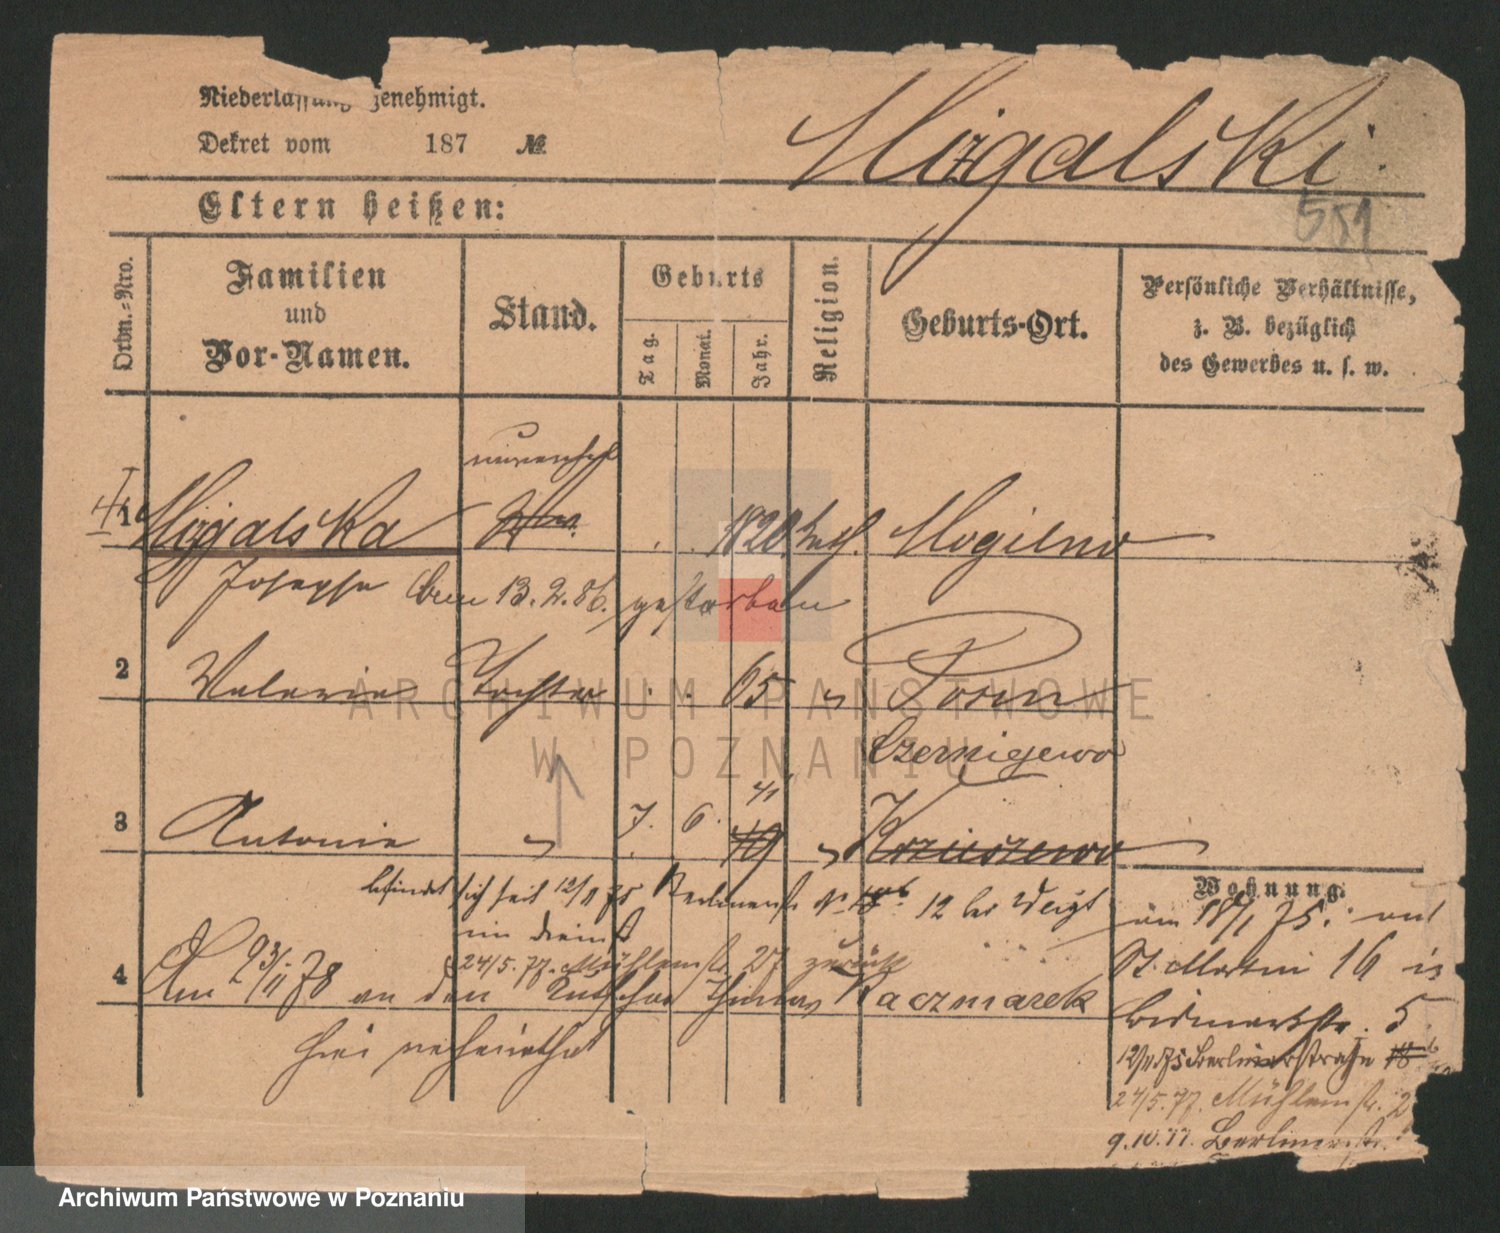 Niederlassung genehmigt.
Dekret vom 187 №
Migalski
551
Eltern heißen:
Ordn.-Nro.
Familien
und
Vor-Namen.
Stand.
Geburts
Tag.
Monat.
Jahr.
Religion.
Geburts-Ort.
Persönliche Verhältnisse,
z. B. bezüglich
des Gewerbes u. s. w.
1 Migalska 1820 kath. Mogilno
Josepha am 13.2.86. gestorben
2 Valeria Tochter 65 " Posen
Czerniejewo
41
3 Antonie " 7. 6. 49 "
befindet sich seit 12/11 75 Berlinerstr. 12 bei Weigt
im Dienst
24/5. 77. Mühlenstr. 27 zurück
4 Am 23/11 78 an den Kutscher Thomas Kaczmarek
hier verheirathet
Wohnung.
am 18/1 75. auf
St. Martin 16 in
Bismarkstr. 5
12/11 75 Berlinerstraße
24/5. 77. Mühlenstr. 2
9.10.77. Berlinerstr.
ARCHIWUM PAŃSTWOWE
W POZNANIU
Archiwum Państwowe w Poznaniu